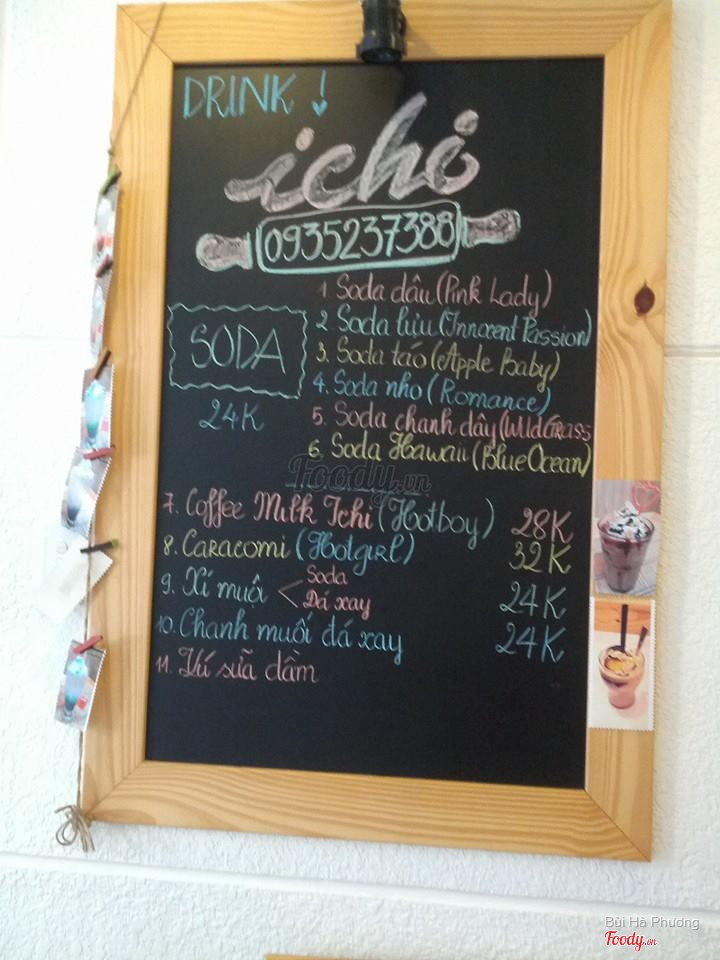 DRINK !
ichi
0935237388
SODA
24K
1. Soda dâu (Pink Lady)
2. Soda lựu (Innocent Passion)
3. Soda táo (Apple Baby)
4. Soda nho (Romance)
5. Soda chanh dây (WildGrass
6. Soda Hawaii (Blue Ocean)
Foody.vn
7. Coffee Milk Ichi (Hotboy) 28K
8. Caracomi (Hotgirl) 32K
9. Xí muội < Soda
Đá xay 24K
10. Chanh muối đá xay 24K
11. Vú sữa dầm
Bùi Hà Phương
Foody.vn